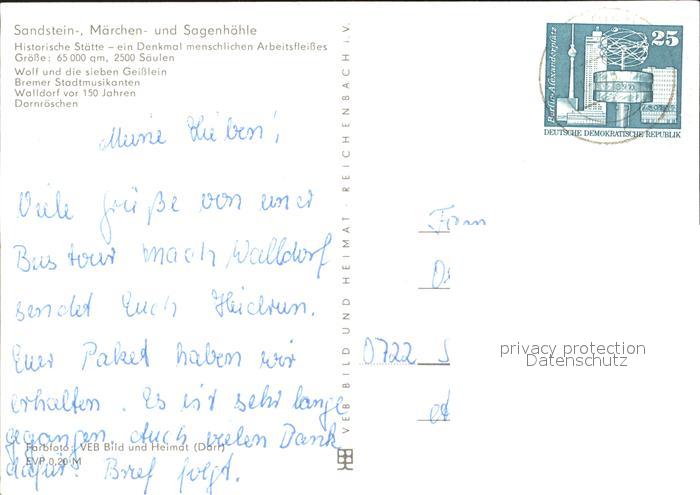 Sandstein-, Märchen- und Sagenhöhle
Historische Stätte – ein Denkmal menschlichen Arbeitsfleißes
Größe: 65 000 qm, 2500 Säulen
Wolf und die sieben Geißlein
Bremer Stadtmusikanten
Walldorf vor 150 Jahren
Dornröschen
Meine Lieben!
Viele Grüße von einer
Bustour nach Walldorf
sendet Euch Heidrun.
Euer Paket haben wir
erhalten. Es ist sehr lange
gegangen. Auch vielen Dank
dafür! Brief folgt.
Farbfoto: VEB Bild und Heimat (Darr)
EVP 0,20 M
VEB BILD UND HEIMAT · REICHENBACH i. V.
Berlin-Alexanderplatz
25
DEUTSCHE DEMOKRATISCHE REPUBLIK
0722 S
privacy protection
Datenschutz